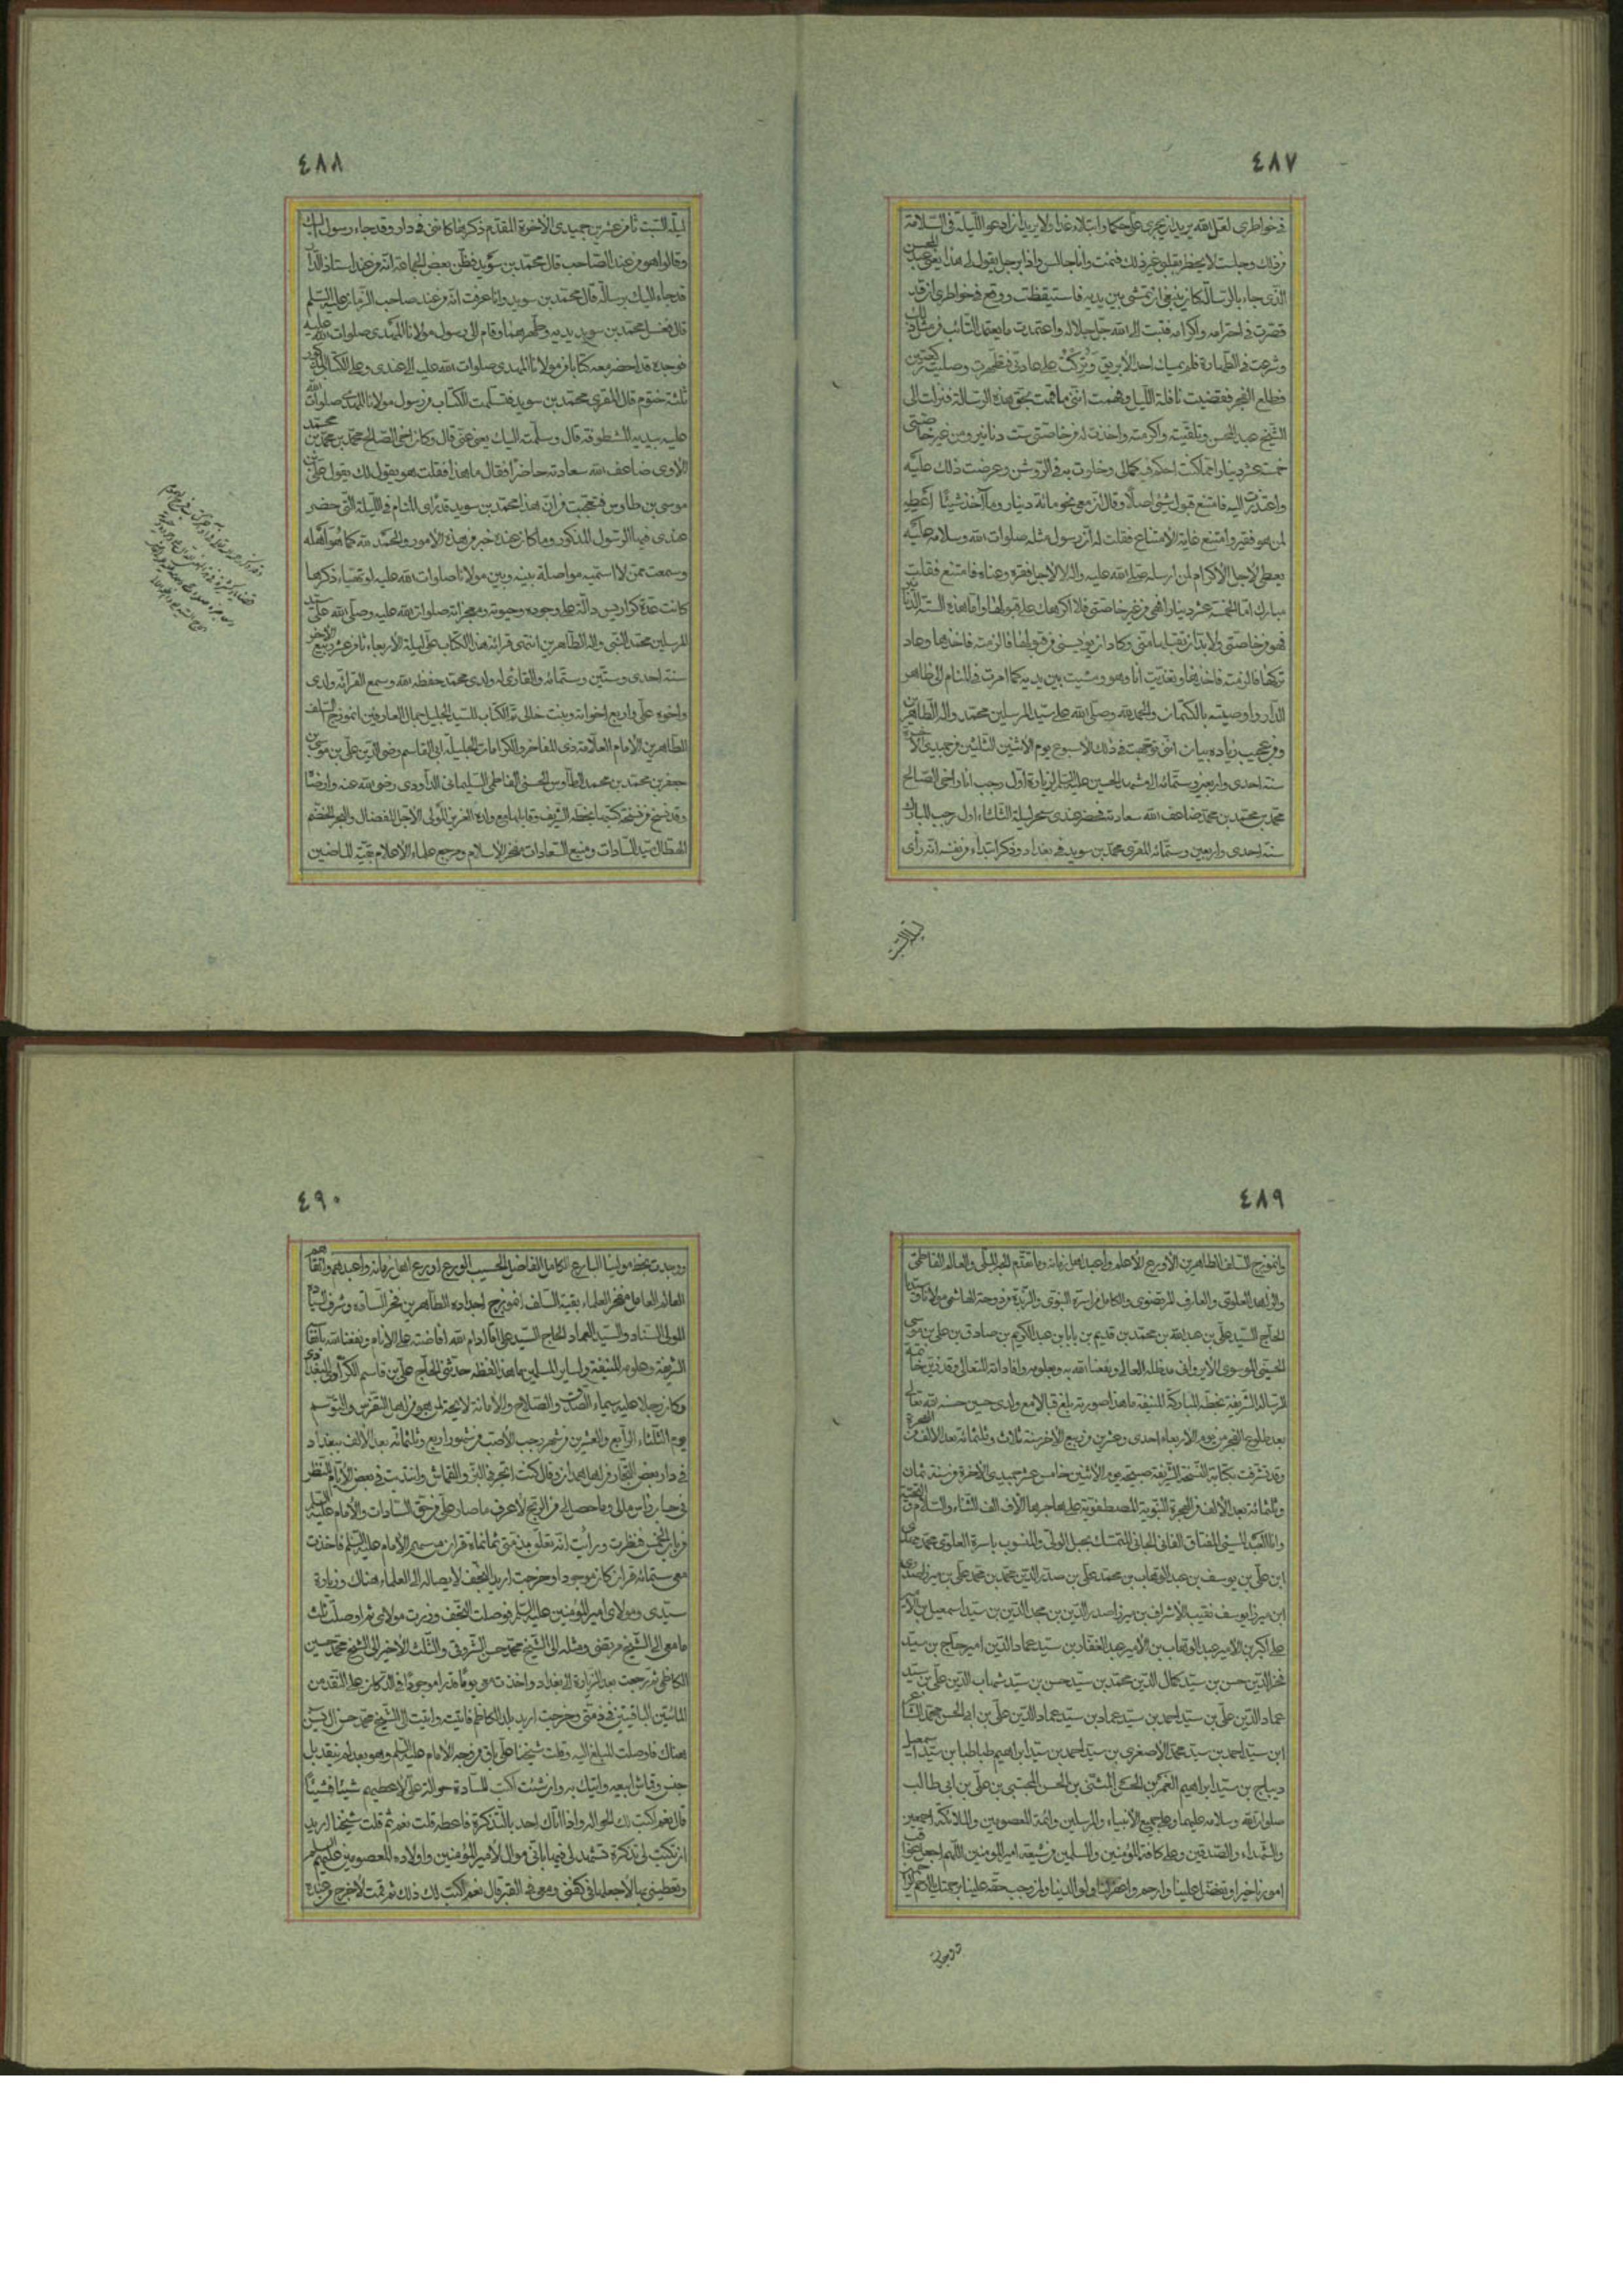 ٤٨٧
فی خواطری لعل الله یرید ان یجری علی حکما وابتلاء غدا ولا یرید ان ادعو اللیلة فی السلامة
من ذلک وجلست لا یخطر بقلبی غیر ذلک فنمت وانا جالس واذا برجل یقول لی هذا یعنی عبد المحسن
الذی جاء بالرسالة کان ینبغی ان تمشی بین یدیه فاستیقظت ووقع فی خواطری انی قد
قصرت فی احترامه واکرامه فتبت الی الله جل جلاله واعتمدت ما یعتمد التائب من مثل ذلک
وشرعت فی الطهارة فلم یمسک احد الابریق وترکت علی عادتی فتطهرت وصلیت رکعتین
فطلع الفجر فقضیت نافلة اللیل وفهمت اننی ما قمت بحق هذه الرسالة فنزلت الی
الشیخ عبد المحسن وتلقیته واکرمته واخذت له من خاصتی ست دنانیر ومن غیر خاصتی
خمسة عشر دینارا مما کنت احکم فیه کمالی وخلوت به فی الروشن وعرضت ذلک علیه
واعتذرت الیه فامتنع قبول شیء اصلا وقال ان معی نحو مائة دینار وما آخذ شیئا اعطه
لمن هو فقیر وامتنع غایة الامتناع فقلت له ان رسول مثله صلوات الله وسلامه علیه
یعطی لاجل الاکرام لمن ارسله صلی الله علیه واله لا لاجل فقره وغناه فامتنع فقلت
مبارک اما الخمسة عشر دینارا فهی من غیر خاصتی فلا اکرهک علی قبولها واما هذه الستة الدنانیر
فهو من خاصتی ولا بد ان تقبلها منی وکاد ان یؤیسنی من قبولها فالزمته فاخذها وعاد
ترکها فالزمته فاخذها وتغدیت انا وهو ومشیت بین یدیه کما امرت فی المنام الی ظاهر
الدار واوصیته بالکتمان والحمد لله وصلی الله علی سید المرسلین محمد واله الطاهرین
ومن عجیب زیادة بیان اننی توجهت فی ذلک الاسبوع یوم الاثنین الثلثین من جمیدی الآخرة
سنة احدی واربعین وستمائة الی مشهد الحسین علیه السلم لزیارة اول رجب انا واخی الصالح
محمد بن محمد بن محمد ضاعف الله سعادته فحضر عندی سحر لیلة الثلثاء اول رجب المبارک
سنة احدی واربعین وستمائة المقری محمد بن سوید فی بغداد وذکر ابتداء من نفسه انه رأی
٤٨٨
لیلة السبت ثامن عشر من جمیدی الآخرة المقدم ذکرها کاننی فی دار وقد جاء رسول الیک
وقالوا هو من عند الصاحب قال محمد بن سوید فظن بعض الجماعة انه من عند استاذ الدار
قد جاء الیک برسالة قال محمد بن سوید وانا عرفت انه من عند صاحب الزمان علیه السلم
قال فغسل محمد بن سوید یدیه وطهرهما وقام الی رسول مولانا المهدی صلوات الله علیه
فوجده قد احضر معه کتابا من مولانا المهدی صلوات الله علیه الی عندی وعلی الکتاب المذکور
ثلثة ختوم قال المقری محمد بن سوید فتسلمت الکتاب من رسول مولانا المهدی صلوات الله
علیه بیدیه المشطوفة قال وسلمته الیک یعنی عنی قال وکان اخی الصالح محمد بن محمد بن محمد
الآوی ضاعف الله سعادته حاضرا فقال ما هذا فقلت هو یقول لک یقول علی بن
موسی بن طاوس فتعجبت من ان هذا محمد بن سوید قد رأی المنام فی اللیلة التی حضر
عندی فیها الرسول المذکور وما کان عنده خبر من هذه الامور والحمد لله کما هو اهله
وسمعت ممن لا اسمیه مواصلة بینه وبین مولانا صلوات الله علیه لو تهیاء ذکرها
کانت عدة کراریس دالة علی وجوده وحیوته ومعجزاته صلوات الله علیه وصلی الله علی سید
المرسلین محمد النبی واله الطاهرین انتهی قرائة هذا الکتاب علی لیلة الاربعاء ثامن عشر ربیع الاخر
سنة احدی وستین وستمائة والقاری له ولدی محمد حفظه الله وسمع القرائة ولدی
واخوه علی واربع اخواته وبنت خالی تم الکتاب للسید الجلیل جمال العارفین انموذج السلف
الطاهرین الامام العلامة ذی المفاخر والکرامات الجلیلة ابی القاسم رضی الدین علی بن موسی بن
جعفر بن محمد بن محمد الطاوس الحسنی الفاطمی السلیمانی الداودی رضی الله عنه وارضا
وقد نسخ من نسخة کتبها بخطه الشریف وقابلها مع ولده العزیز المولی الاجل المفضال والبحر الخضم
الهطال سید السادات ومنبع السعادات مفخر الاسلام ومرجع علماء الاعلام بقیة الماضین
٤٨٩
وانموذج السلف الطاهرین الاورع الاعلم واعبد اهل زمانه وما تقدم الحبر الملی والعالم الفاطمی
والزاهد العلوی والعارف المرتضوی والکامل من اسرة النبوی والزبدة من دوحة الهاشمی مولانا وسیدنا
الحاج السید علی بن عبد الله بن محمد بن قدیم بن بابا بن عبد الکریم بن صادق بن علی بن موسی
الحسینی الموسوی مد ظله العالی ونفعنا الله به وبعلومه وافاداته المتعالی وقد زین خاتمة
الرسالة الشریفة بخطه المبارکة المنیفة ما هذا صورته بلغ قبالا مع ولدی حسین حسنه الله تعالی
بعد طلوع الفجر من یوم الاربعاء احدی وعشرین من ربیع الاخر سنة ثلاث وثلثمائة بعد الالف من الهجرة
وقد تشرفت بکتابة النسخة الشریفة صبیحة یوم الاثنین خامس عشر جمیدی الاخرة من سنة ثمان
وثلثمائة بعد الالف من الهجرة النبویة المصطفویة علی هاجرها الاف الف الثناء والسلام والتحیة
وانا العبد المسیء المفتاق الفانی الجانی المتمسک بحبل الولی والمنسوب باسرة العلوی محمد مهدی
ابن علی بن یوسف بن عبد الوهاب بن محمد علی بن صدر الدین محمد بن محمد علی بن میرزا مهدی
ابن میرزا یوسف نقیب الاشراف بن میرزا صدر الدین بن مجد الدین بن سید اسمعیل بن الامیر
علی اکبر بن الامیر عبد الوهاب بن الامیر عبد الغفار بن سید عماد الدین امیر حاج بن سید
فخر الدین حسن بن سید کمال الدین محمد بن سید حسن بن سید شهاب الدین علی بن سید
عماد الدین علی بن سید احمد بن سید عماد بن سید عماد الدین علی بن ابی الحسن محمد الشاعر
ابن سید احمد بن سید محمد الاصغر بن سید احمد بن سید ابراهیم طباطبا بن سید اسمعیل
دیباج بن سید ابراهیم الغمر بن الحسن المثنی بن الحسن المجتبی بن علی بن ابی طالب
صلوات الله وسلامه علیهما وعلی جمیع الانبیاء والمرسلین وائمة المعصومین والملائکة اجمعین
والشهداء والصدیقین وعلی کافة المؤمنین والمسلمین من شیعة امیر المؤمنین اللهم اجعل عواقب
امورنا خیرا وتفضل علینا وارحم واغفر لنا ولوالدینا ولمن وجب حقه علینا برحمتک یا ارحم الراحمین
ووجدت
٤٩٠
ووجدت بخط مولینا البارع الکامل الفاضل الحسیب الورع اورع اهل زمانه واعبدهم واتقاهم
العالم العامل مفخر العلماء بقیة السلف انموذج اجداده الطاهرین فخر السادة وشرف السیادة
المولی السناد والسید العماد الحاج السید علی اقا ادام الله افاضته علی الانام ونفعنا الله بانفاسه
الشریفة وعلومه المنیفة ولسایر المسلمین بما هذا لفظه حدثنی الحاج علی بن قاسم الکرادی البغدادی
وکان رجلا علیه سیماء الصدق والصلاح والامانة لایحة لمن هو من اهل التفرس والتوسم
یوم الثلثاء الرابع والعشرین من شهر رجب الاصب من شهور اربع وثلثمائة بعد الالف ببغداد
فی دار بعض التجار من اهل همدان وقال کنت اتجر فی البز والقماش وابتدیت فی بعض الایام انظر
فی حساب راس مالی وما حصل لی من الربح لاعرف ما صار علی من حق السادات والامام علیه السلم
من باب الخمس فنظرت ورأیت انه تعلق بذمتی ثمانمائة قران من سهم الامام علیه السلم فاخذت
معی ستمائة قران کان موجودا وخرجت ارید النجف لایصاله الی العلماء هناک وزیارة
سیدی ومولای امیر المؤمنین علیه السلم فوصلت النجف وزرت مولای ثم اوصلت ثلث
ما معی الی الشیخ مرتضی ومثله الی الشیخ محمد حسن الشروقی والثلث الاخیر الی الشیخ محمد حسین
الکاظمی ثم رجعت بعد الزیارة الی بغداد واخذت یوما ما قدرا موجودا فی الدکان علی النقد من
المائتین الباقیتین فی ذمتی وخرجت ارید بلد الکاظم فاتیته واتیت الی الشیخ محمد حسن ال یس
هناک فاوصلت المبلغ الیه وقلت شیخنا علی باق من وجه الامام علیه السلم وهو بعد لم ینقد بل
جنس وقماش ابیعه واتیک به وان شئت اکتب للسادة حوالة علی لاعطیهم شیئا فشیئا
قال نعم اکتب لک الحوالة واذا اتاک احد بالتذکرة فاعطه قلت نعم ثم قلت شیخنا ارید
ان تکتب لی تذکرة تشهد لی فیها بانی موال لامیر المؤمنین واولاده المعصومین علیهم السلم
وتعطینی بها لاجعلها فی کفنی ومعی فی القبر قال نعم اکتب لک ذلک ثم قمت لاخرج من عنده